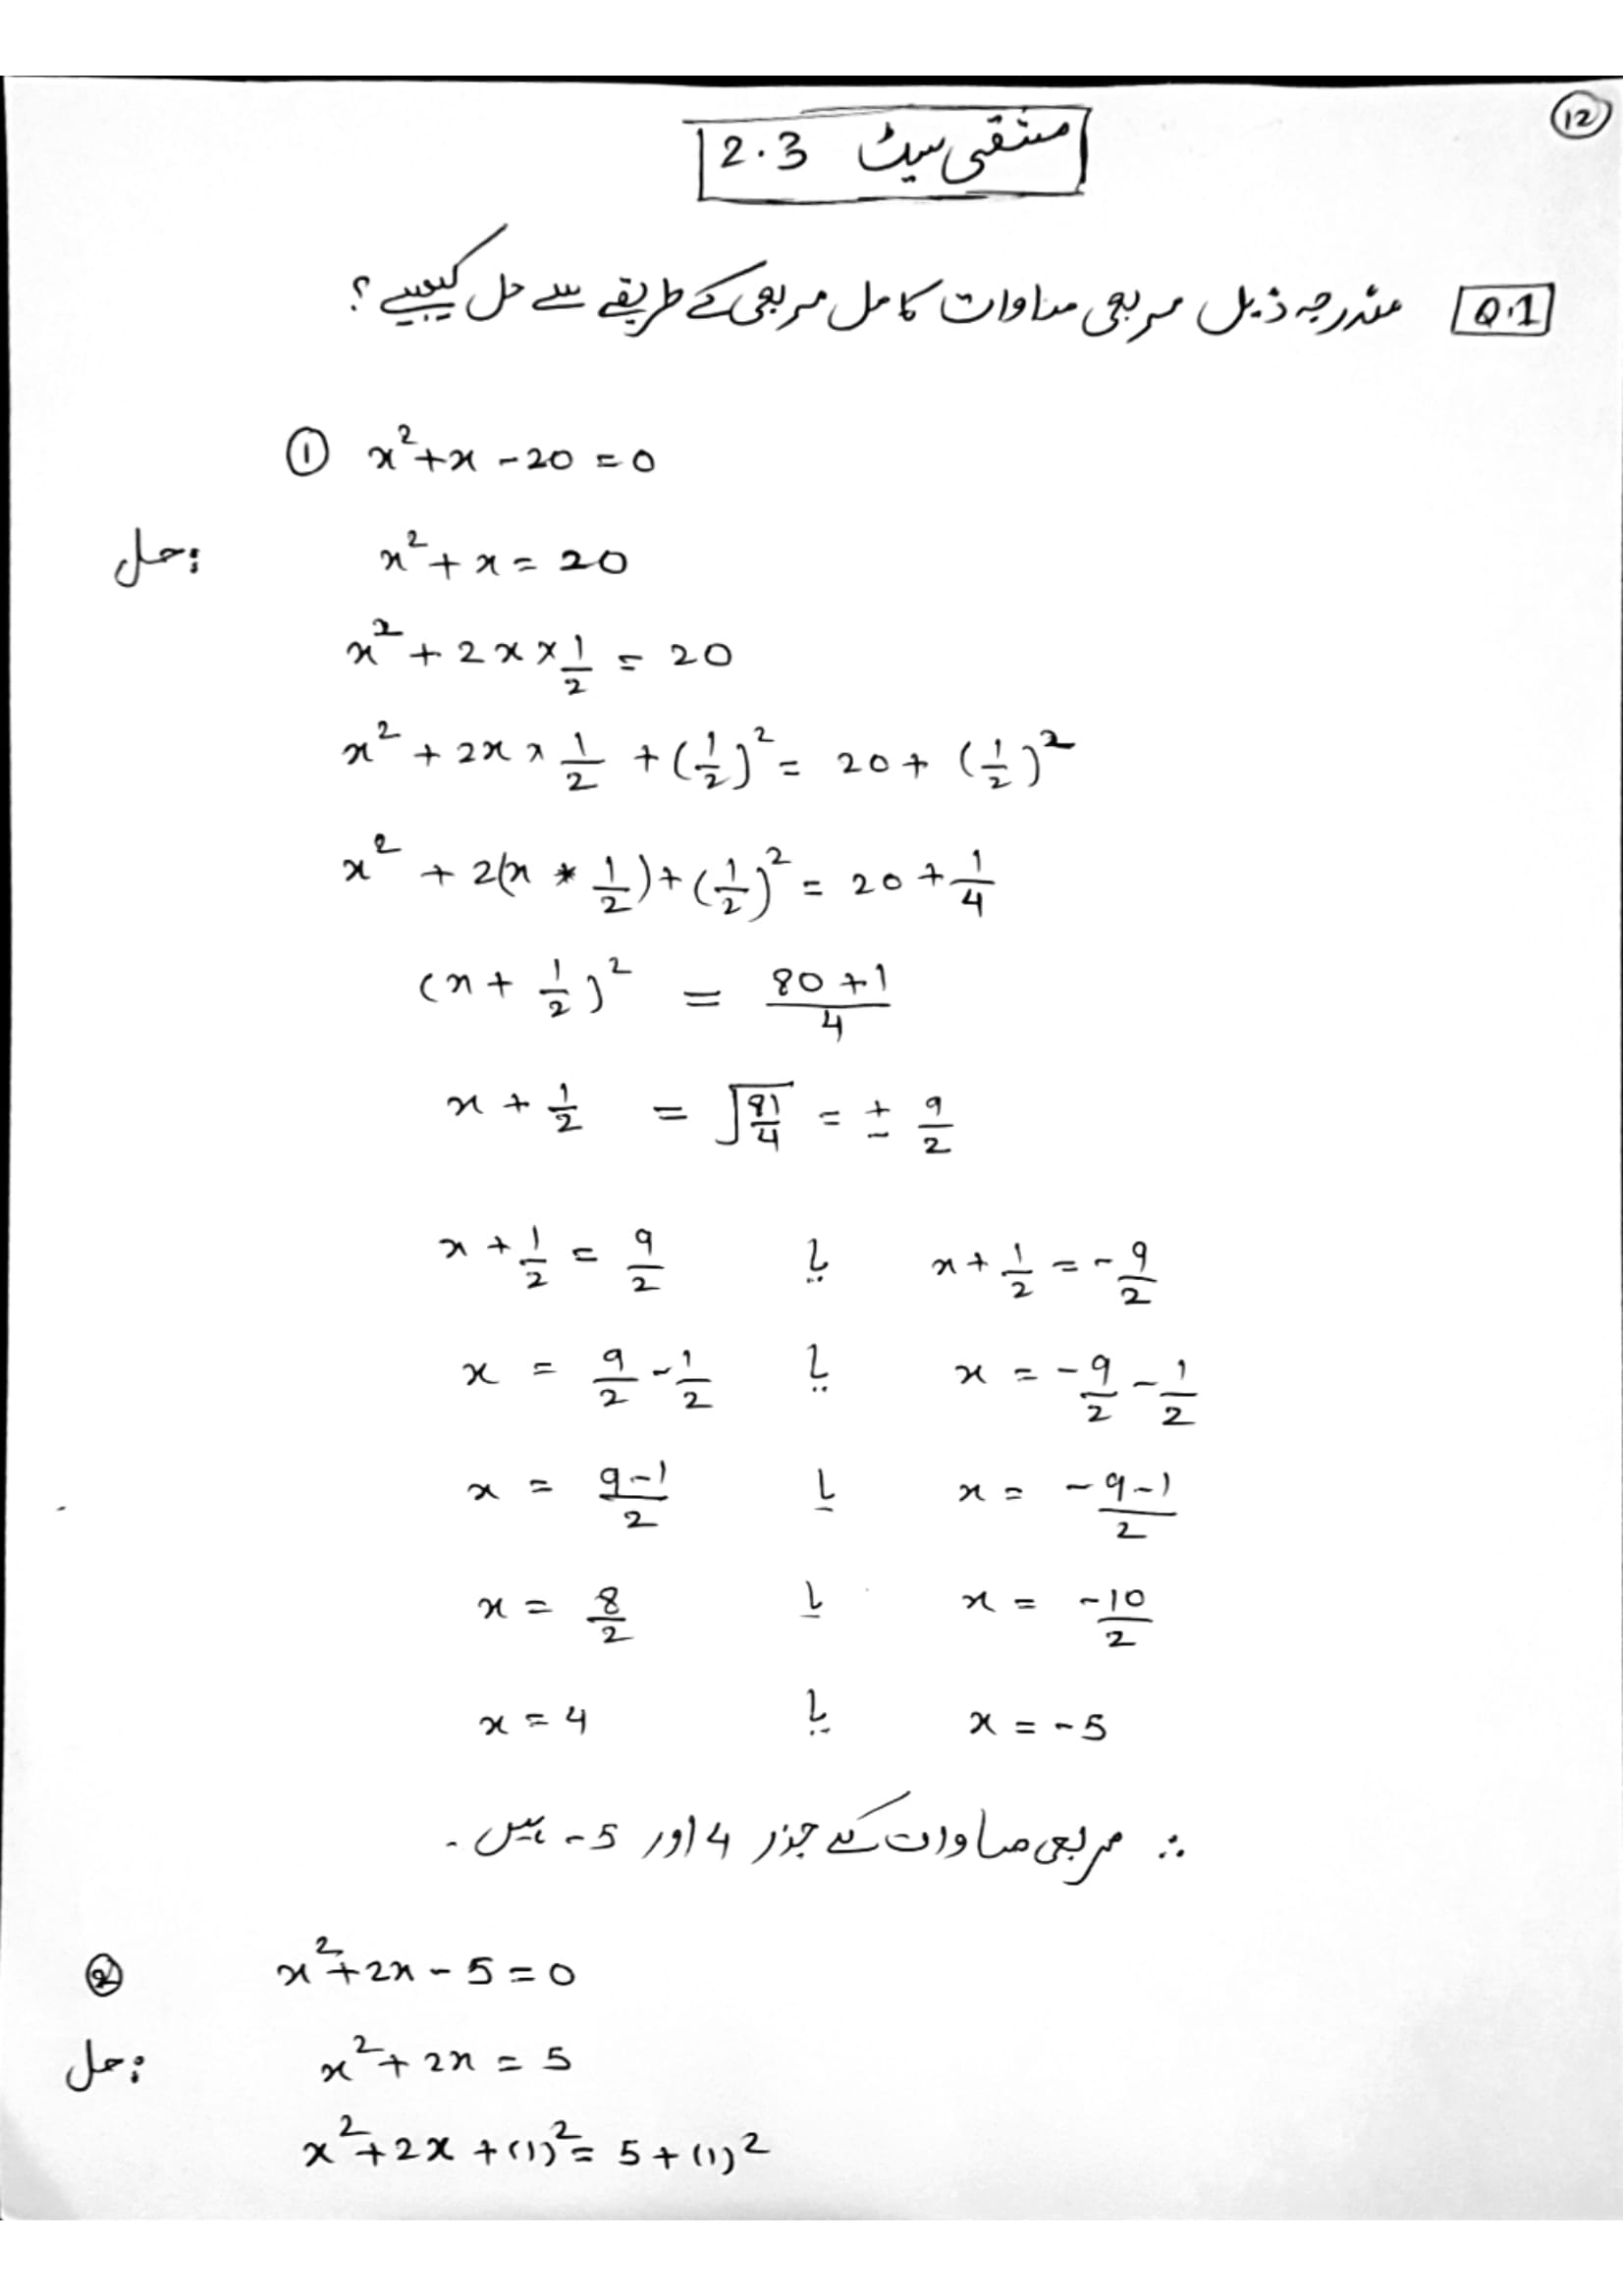 12
مشقی سیٹ 2.3
Q.1 مندرجہ ذیل مربعی مساوات کامل مربعی کے طریقے سے حل کیجیے؟
① x² + x - 20 = 0
حل: x² + x = 20
x² + 2x × 1/2 = 20
x² + 2x × 1/2 + (1/2)² = 20 + (1/2)²
x² + 2(x * 1/2) + (1/2)² = 20 + 1/4
(x + 1/2)² = (80 + 1)/4
x + 1/2 = √(81/4) = ± 9/2
x + 1/2 = 9/2 یا x + 1/2 = -9/2
x = 9/2 - 1/2 یا x = -9/2 - 1/2
x = (9-1)/2 یا x = (-9-1)/2
x = 8/2 یا x = -10/2
x = 4 یا x = -5
∴ مربعی مساوات کے جزر 4 اور 5- ہیں۔
② x² + 2x - 5 = 0
حل: x² + 2x = 5
x² + 2x + (1)² = 5 + (1)²